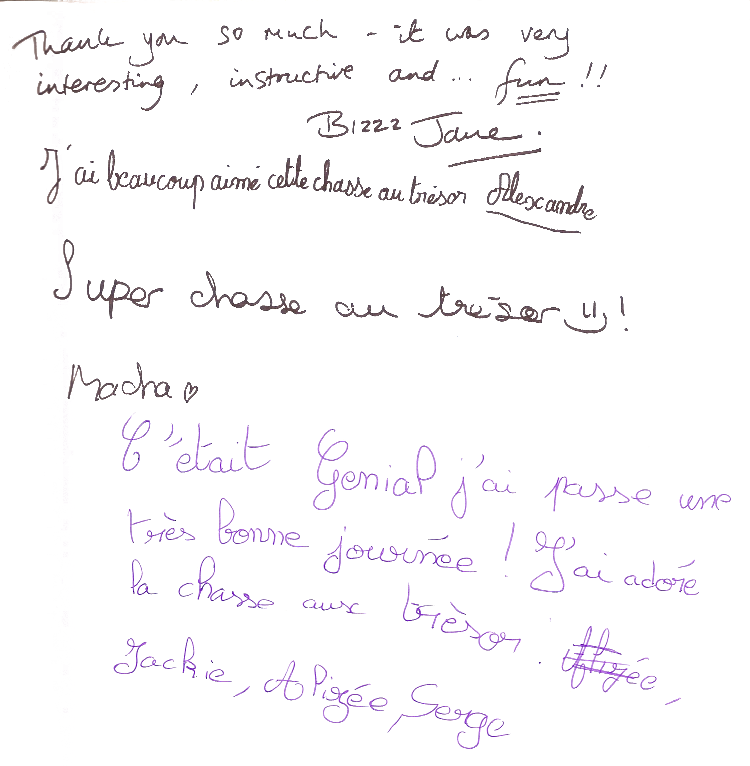 Thank you so much - it was very
interesting, instructive and... fun!!
Bizzz Jane.
J'ai beaucoup aimé cette chasse au trésor Alexandre
Super chasse au trésor !
Macha
C'était Genial j'ai passe une
très bonne journée ! J'ai adoré
la chasse aux trèsor.
Jackie, Alizée, Serge